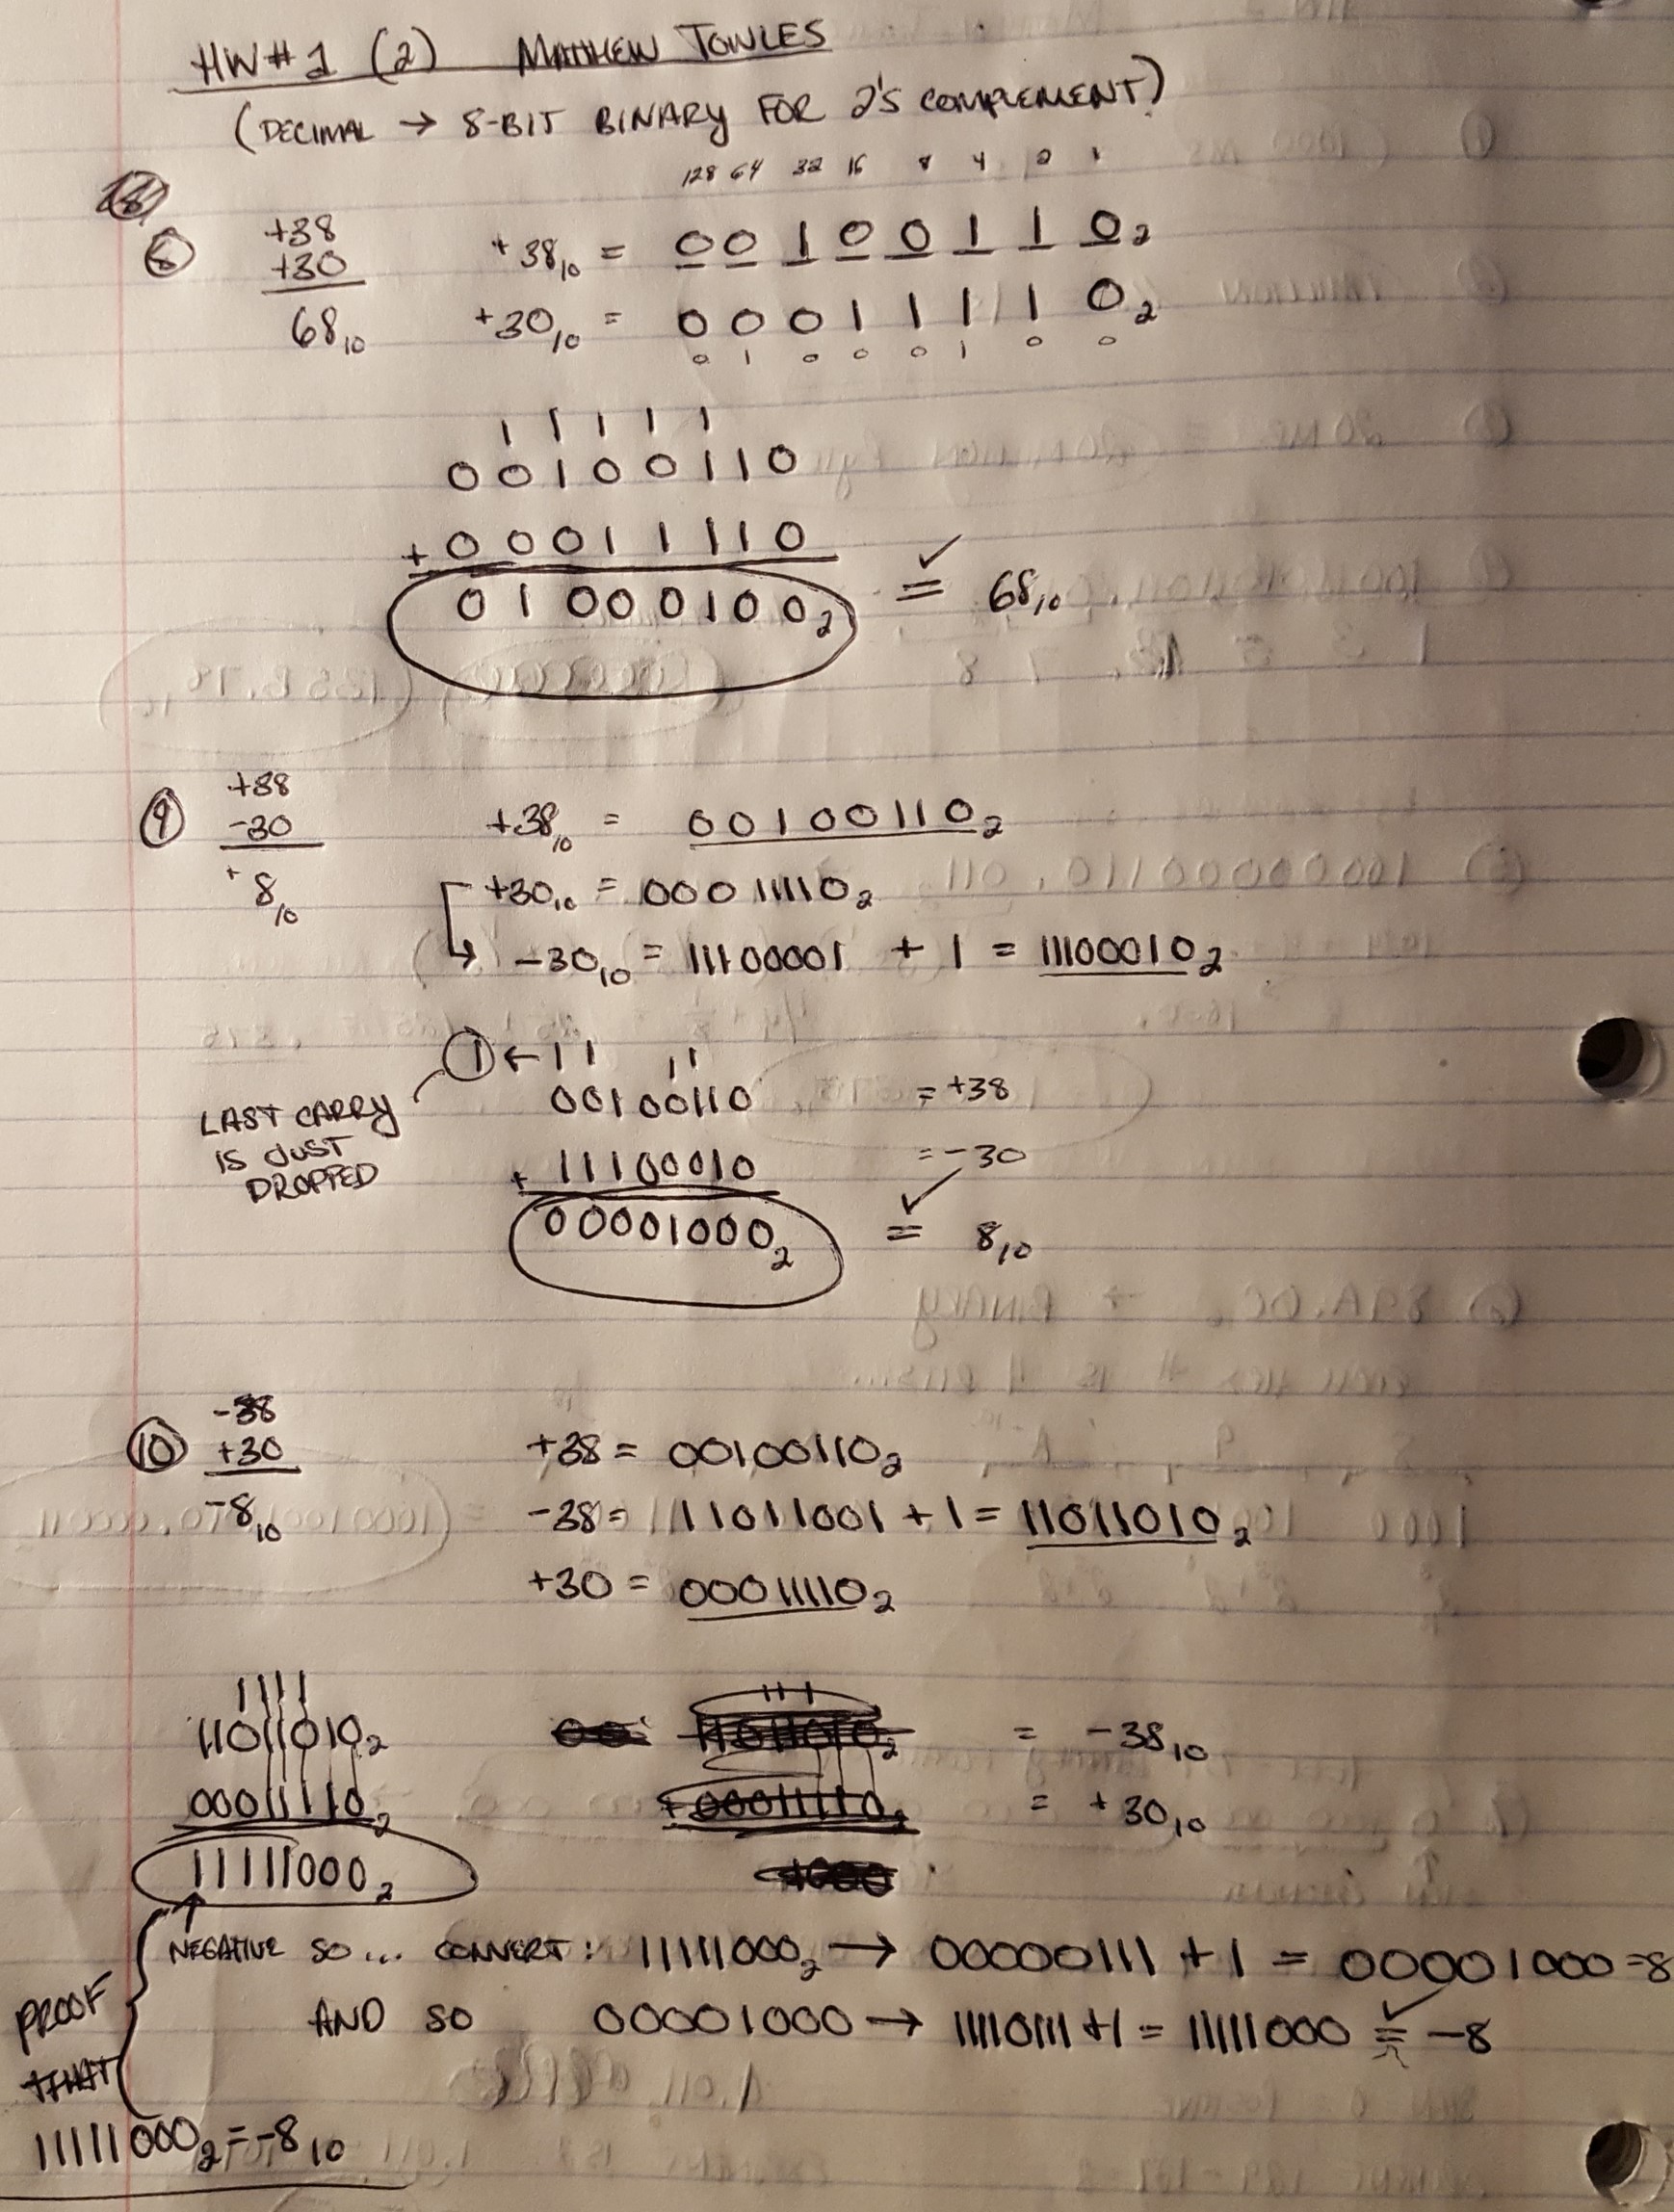 HW#1 (2) MATTHEW TOWLES
(DECIMAL → 8-BIT BINARY FOR 2'S COMPLEMENT)
128 64 32 16 8 4 2 1
8 +38 +38₁₀ = 0 0 1 0 0 1 1 0₂
+30
68₁₀ +30₁₀ = 0 0 0 1 1 1 1 0₂
0 1 0 0 0 1 0 0
1 1 1 1 1
0 0 1 0 0 1 1 0
+ 0 0 0 1 1 1 1 0
0 1 0 0 0 1 0 0₂ =✓ 68₁₀
9 +38
-30 +38₁₀ = 00100110₂
+8₁₀ +30₁₀ = 00011110₂
→ -30₁₀ = 11100001 + 1 = 11100010₂
1 ← 1 1 1 1
00100110 = +38
LAST CARRY
IS JUST
DROPPED
+ 11100010 = -30
00001000₂ =✓ 8₁₀
10 -38
+30 +38 = 00100110₂
-8₁₀ -38 = 11011001 + 1 = 11011010₂
+30 = 00011110₂
1111
11011010₂ = -38₁₀
00011110₂ = +30₁₀
11111000₂
NEGATIVE SO... CONVERT: 11111000₂ → 00000111 + 1 = 00001000 = 8
AND SO 00001000 → 11110111 + 1 = 11111000 =✓ -8
PROOF
THAT
11111000₂ = -8₁₀